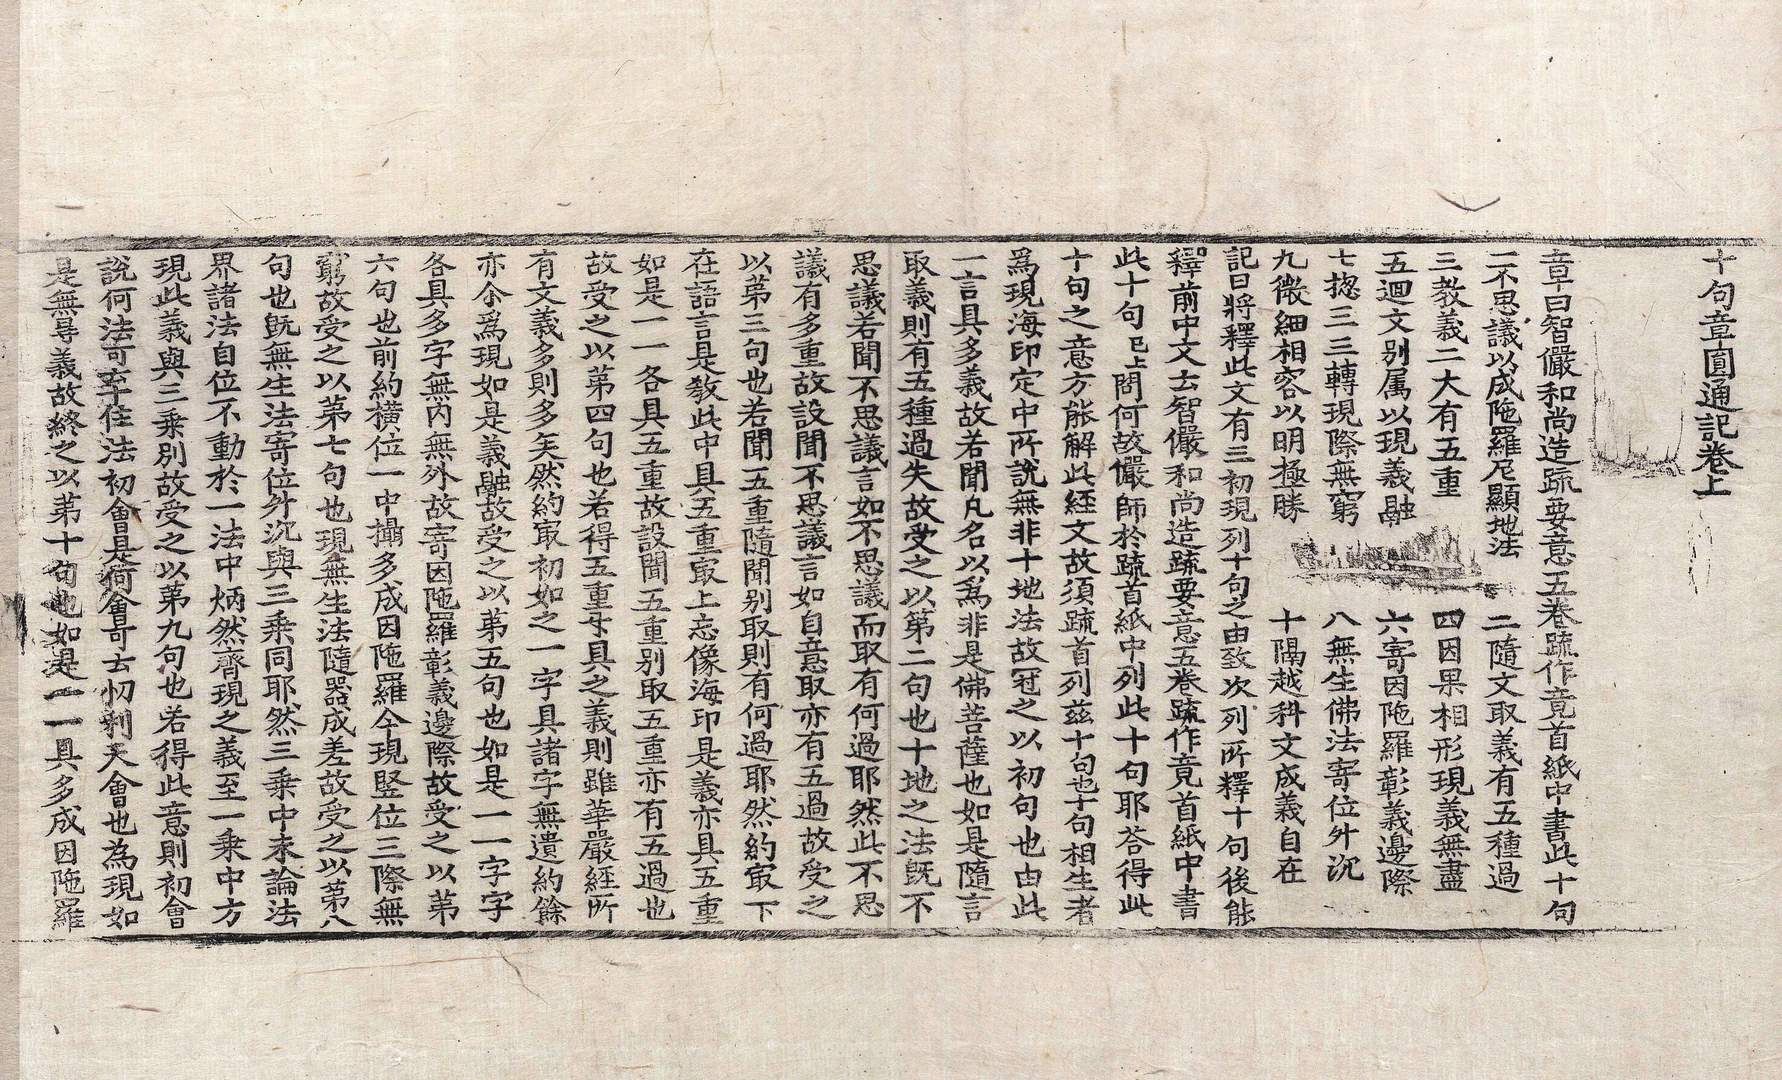 十句章圓通記卷上
章曰智儼和尚造疏要意五卷疏作竟首紙中書此十句
一不思議以成陁羅尼顯地法　二隨文取義有五種過
三教義二大有五重　四因果相形現義無盡
五迴文別属以現義融　六寄因陁羅彰義邊際
七揔三三轉現際無窮　八無生佛法寄位升沉
九微細相容以明極勝　十隔越科文成義自在
記曰將釋此文有三初現列十句之由致次列所釋十句後能
釋前中文云智儼和尚造疏要意五卷疏作竟首紙中書
此十句已上問何故儼師於疏首紙中列此十句耶荅得此
十句之意方能解此經文故須疏首列茲十句也十句相生者
爲現海印定中所說無非十地法故冠之以初句也由此
一言具多義故若聞凡名以爲非是佛菩薩也如是隨言
取義則有五種過失故受之以第二句也十地之法旣不
思議若聞不思議言如不思議而取有何過耶然此不思
議有多重故設聞不思議言如自意取亦有五過故受之
以第三句也若聞五重隨聞別取則有何過耶然約㝡下
在語言是教此中具五重㝡上忘像海印是義亦具五重
如是一一各具五重故設聞五重別取五重亦有五過也
故受之以第四句也若得五重牙具之義則雖華嚴經所
有文義多則多矣然約㝡初如之一字具諸字無遺約餘
亦尒爲現如是義融故受之以苐五句也如是一一字字
各具多字無內無外故寄因陁羅彰義邊際故受之以苐
六句也前約橫位一中攝多成因陁羅今現竪位三際無
窮故受之以第七句也現無生法隨器成差故受之以第八
句也旣無生法寄位升沉與三乘同耶然三乘中未論法
界諸法自位不動於一法中炳然齊現之義至一乘中方
現此義與三乘別故受之以第九句也若得此意則初會
說何法可卒住法初會是何會可云忉利天會也為現如
是無㝵義故終之以苐十句也如是一一具多成因陁羅